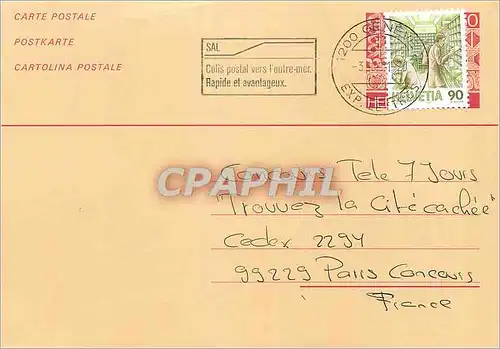 CARTE POSTALE
POSTKARTE
CARTOLINA POSTALE
SAL
Colis postal vers l'outre-mer.
Rapide et avantageux.
1200 GENÈV
-3.
EXP. LETTRES
HELVETIA 90
CPAPHIL
Concours Tele 7 Jours
"Trouvez la Cité cachée"
Cedex 2294
99229 Paris Concours
France